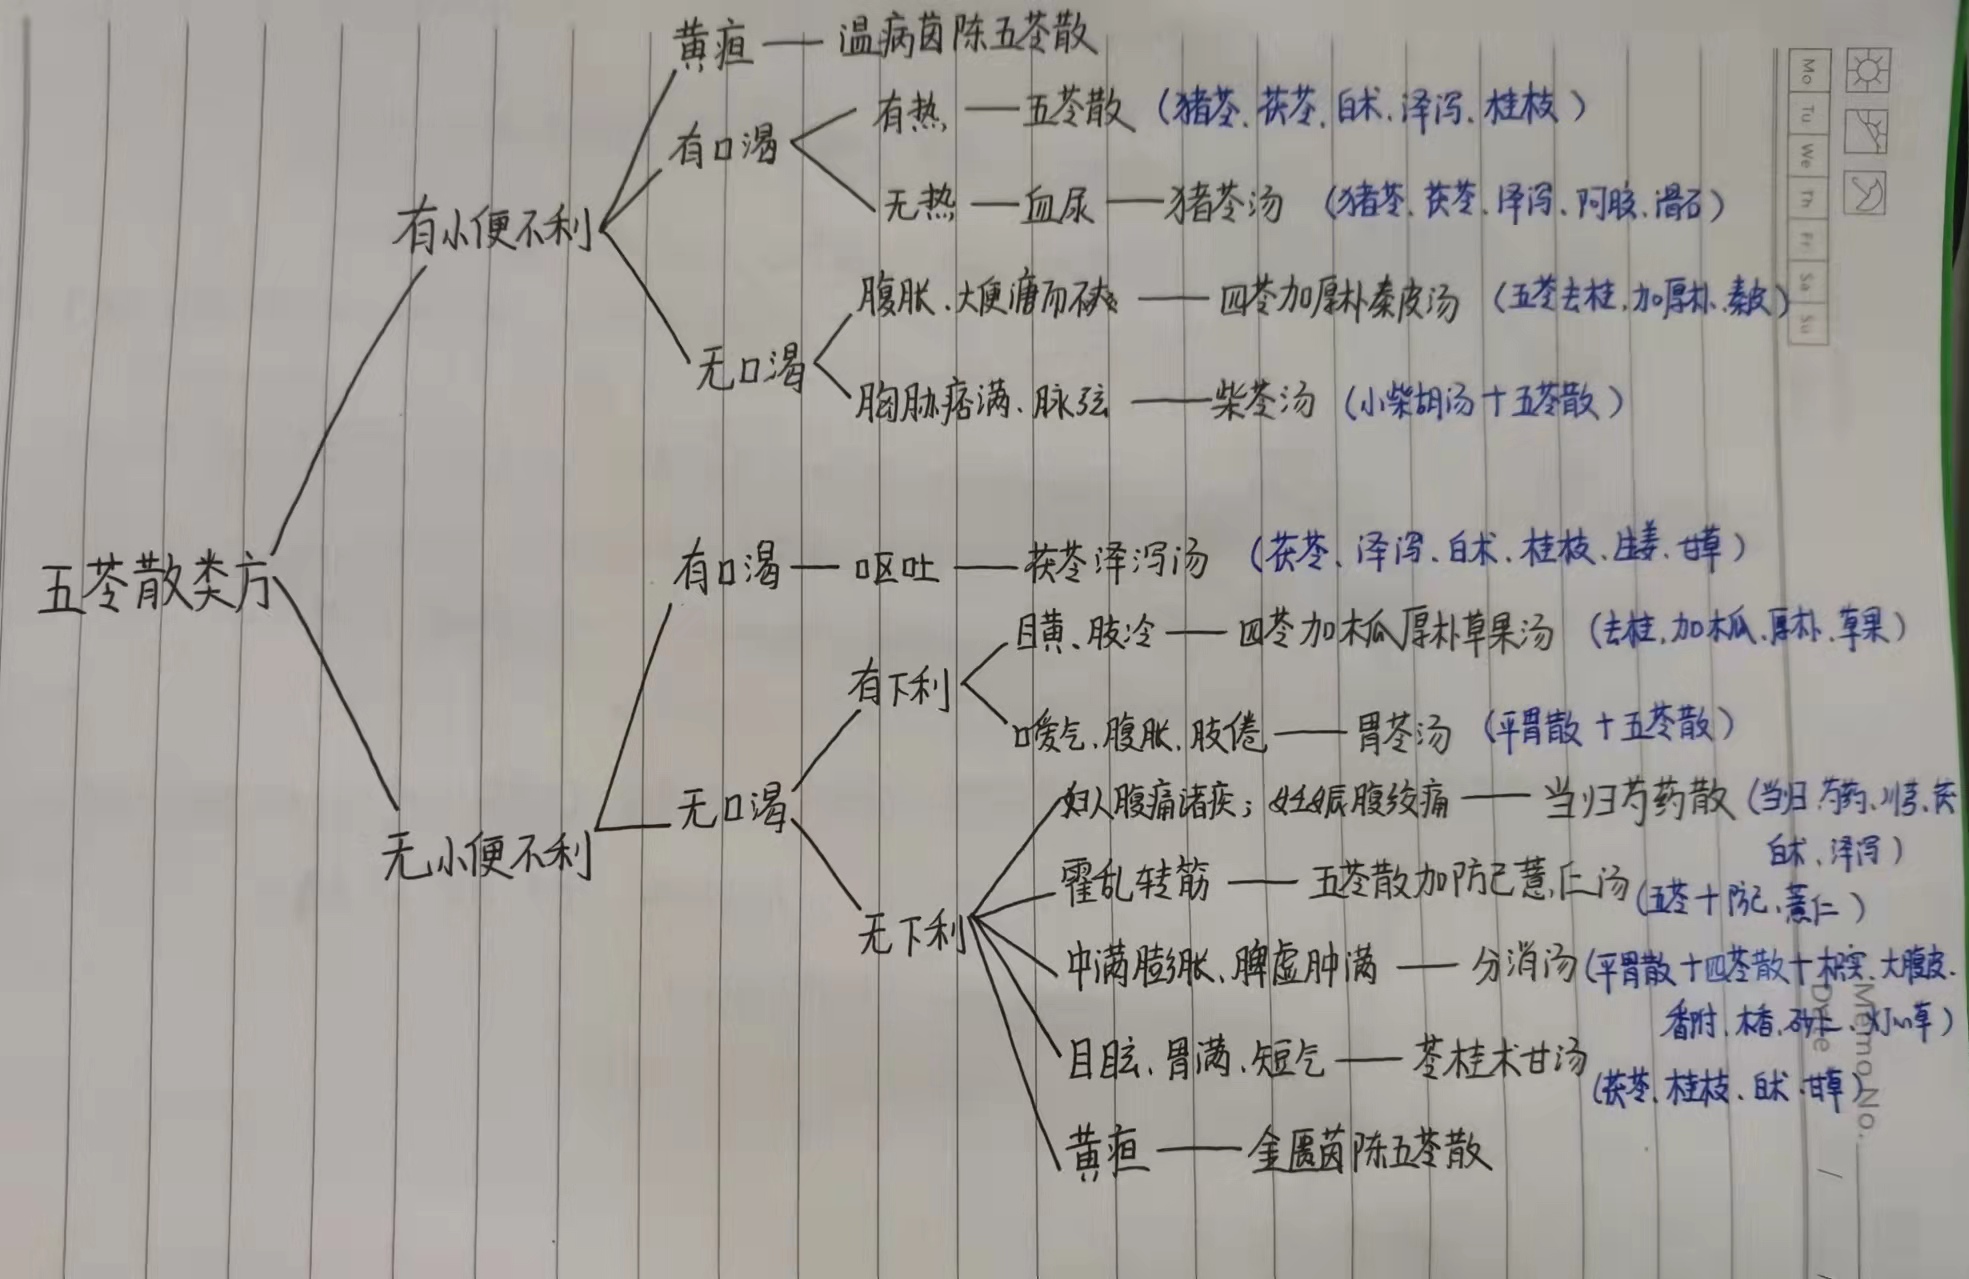 黄疸 — 温病茵陈五苓散
有口渴
有热 — 五苓散 (猪苓、茯苓、白术、泽泻、桂枝)
无热 — 血尿 — 猪苓汤 (猪苓、茯苓、泽泻、阿胶、滑石)
有小便不利
腹胀、大便溏而不爽 — 四苓加厚朴秦皮汤 (五苓去桂,加厚朴、秦皮)
无口渴
胸胁痞满、脉弦 — 柴苓汤 (小柴胡汤+五苓散)
五苓散类方
有口渴 — 呕吐 — 茯苓泽泻汤 (茯苓、泽泻、白术、桂枝、生姜、甘草)
目黄、肢冷 — 四苓加木瓜厚朴草果汤 (去桂,加木瓜、厚朴、草果)
有下利
嗳气、腹胀、肢倦 — 胃苓汤 (平胃散+五苓散)
无口渴
无小便不利
妇人腹痛诸疾;妊娠腹绞痛 — 当归芍药散 (当归、芍药、川芎、茯
白术、泽泻)
霍乱转筋 — 五苓散加防己薏仁汤 (五苓+防己、薏仁)
无下利
中满膨胀、脾虚肿满 — 分消汤 (平胃散+四苓散+枳实、大腹皮、
香附、木香、砂仁、灯心草)
目眩、胃满、短气 — 苓桂术甘汤
(茯苓、桂枝、白术、甘草)
黄疸 — 金匮茵陈五苓散
Mo
Tu
We
Fr
Sa
Su
Memo No.
Date